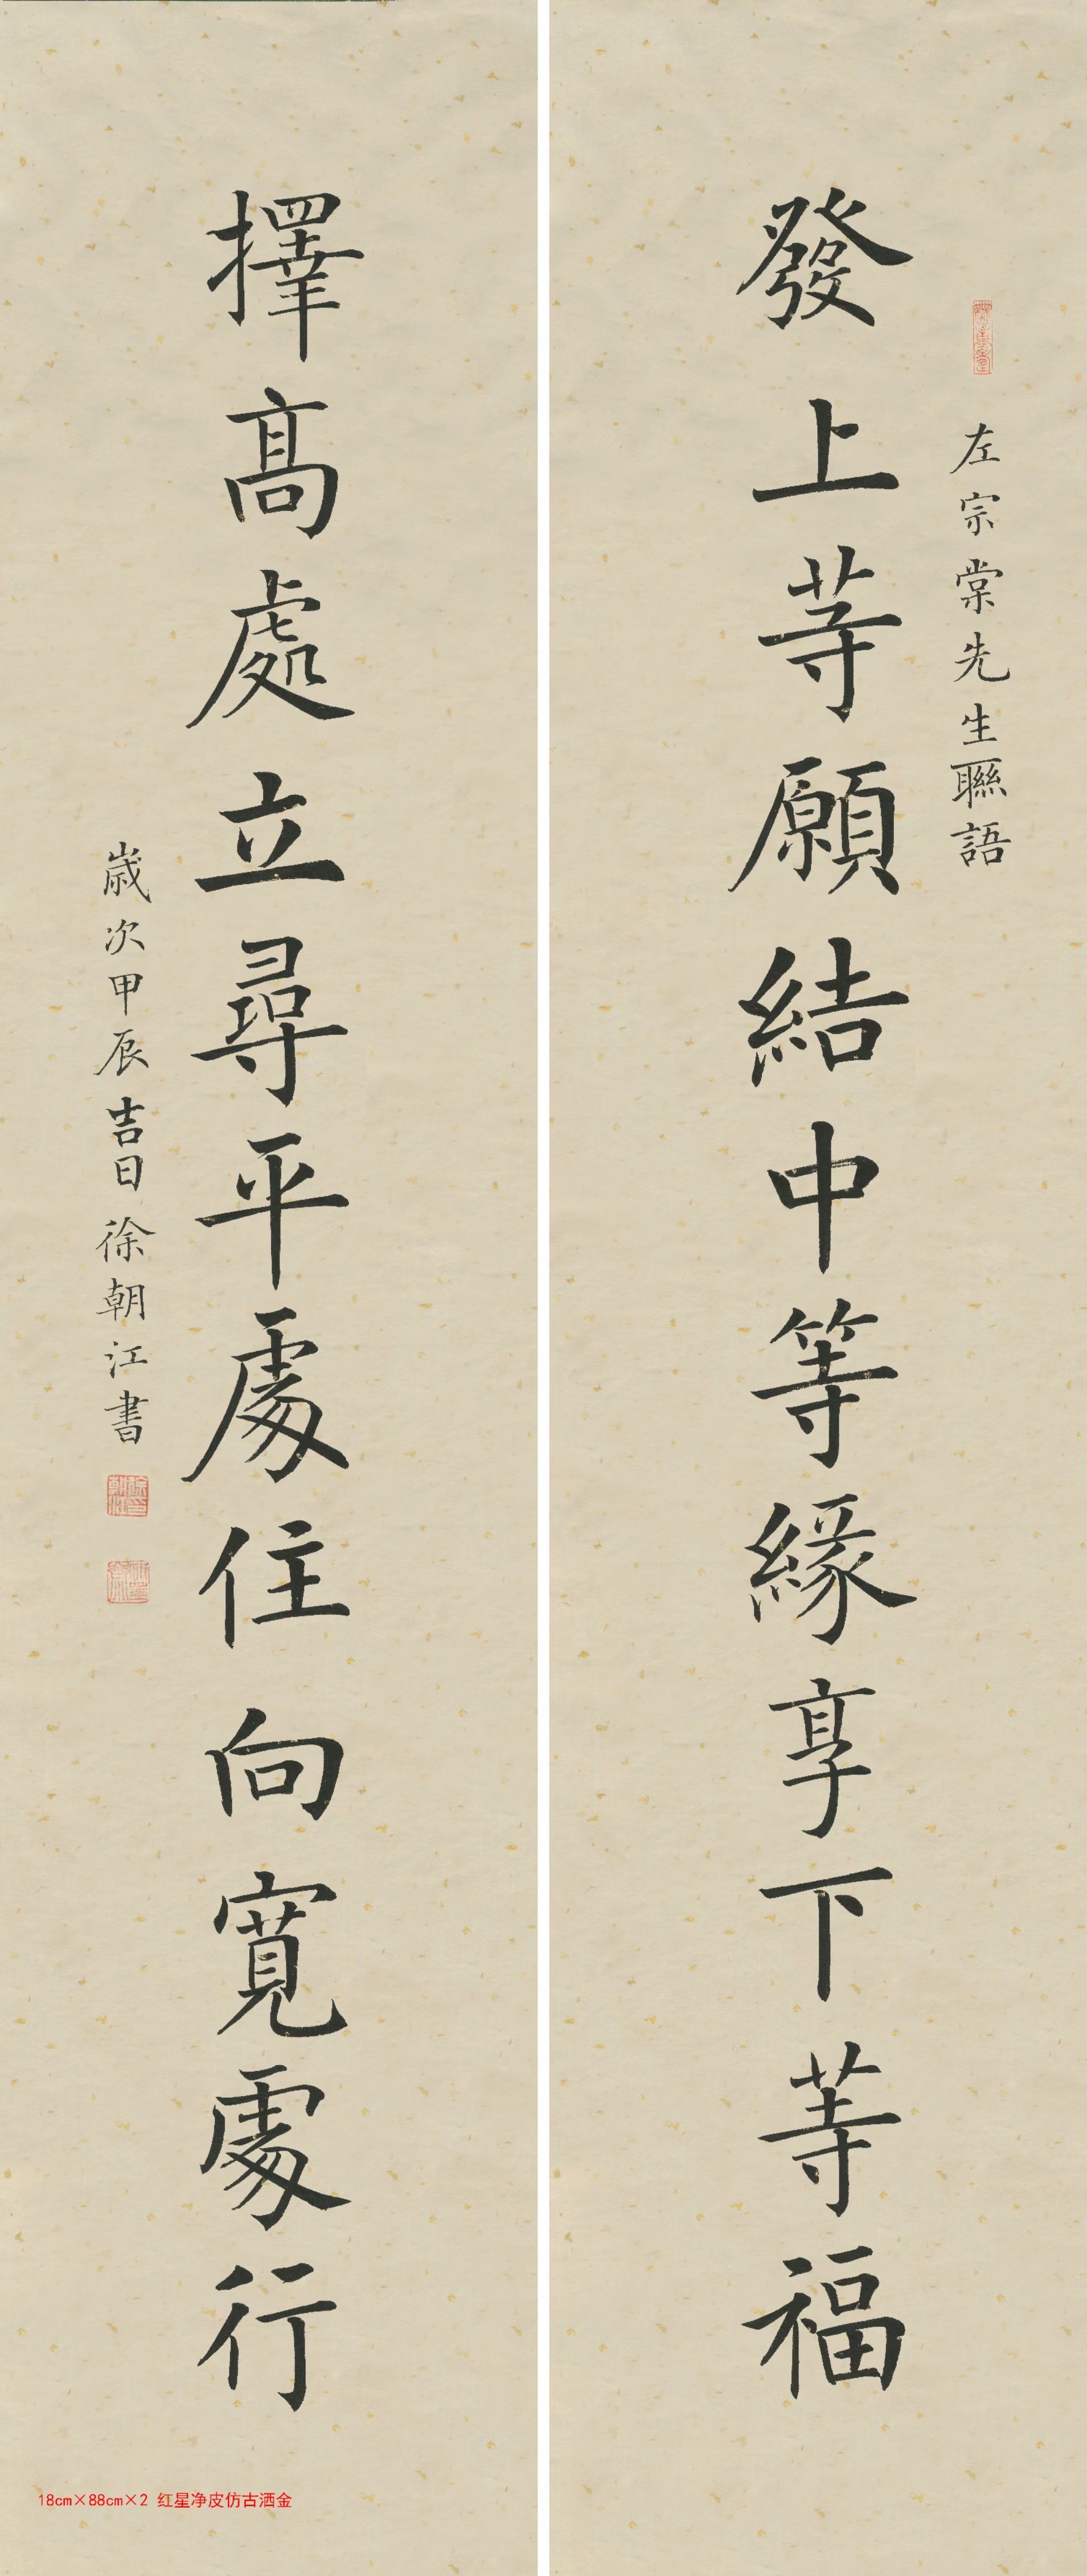 發上等願結中等緣享下等福
左宗棠先生聯語
擇高處立尋平處住向寬處行
歲次甲辰吉日徐朝江書
18cm×88cm×2 红星净皮仿古洒金